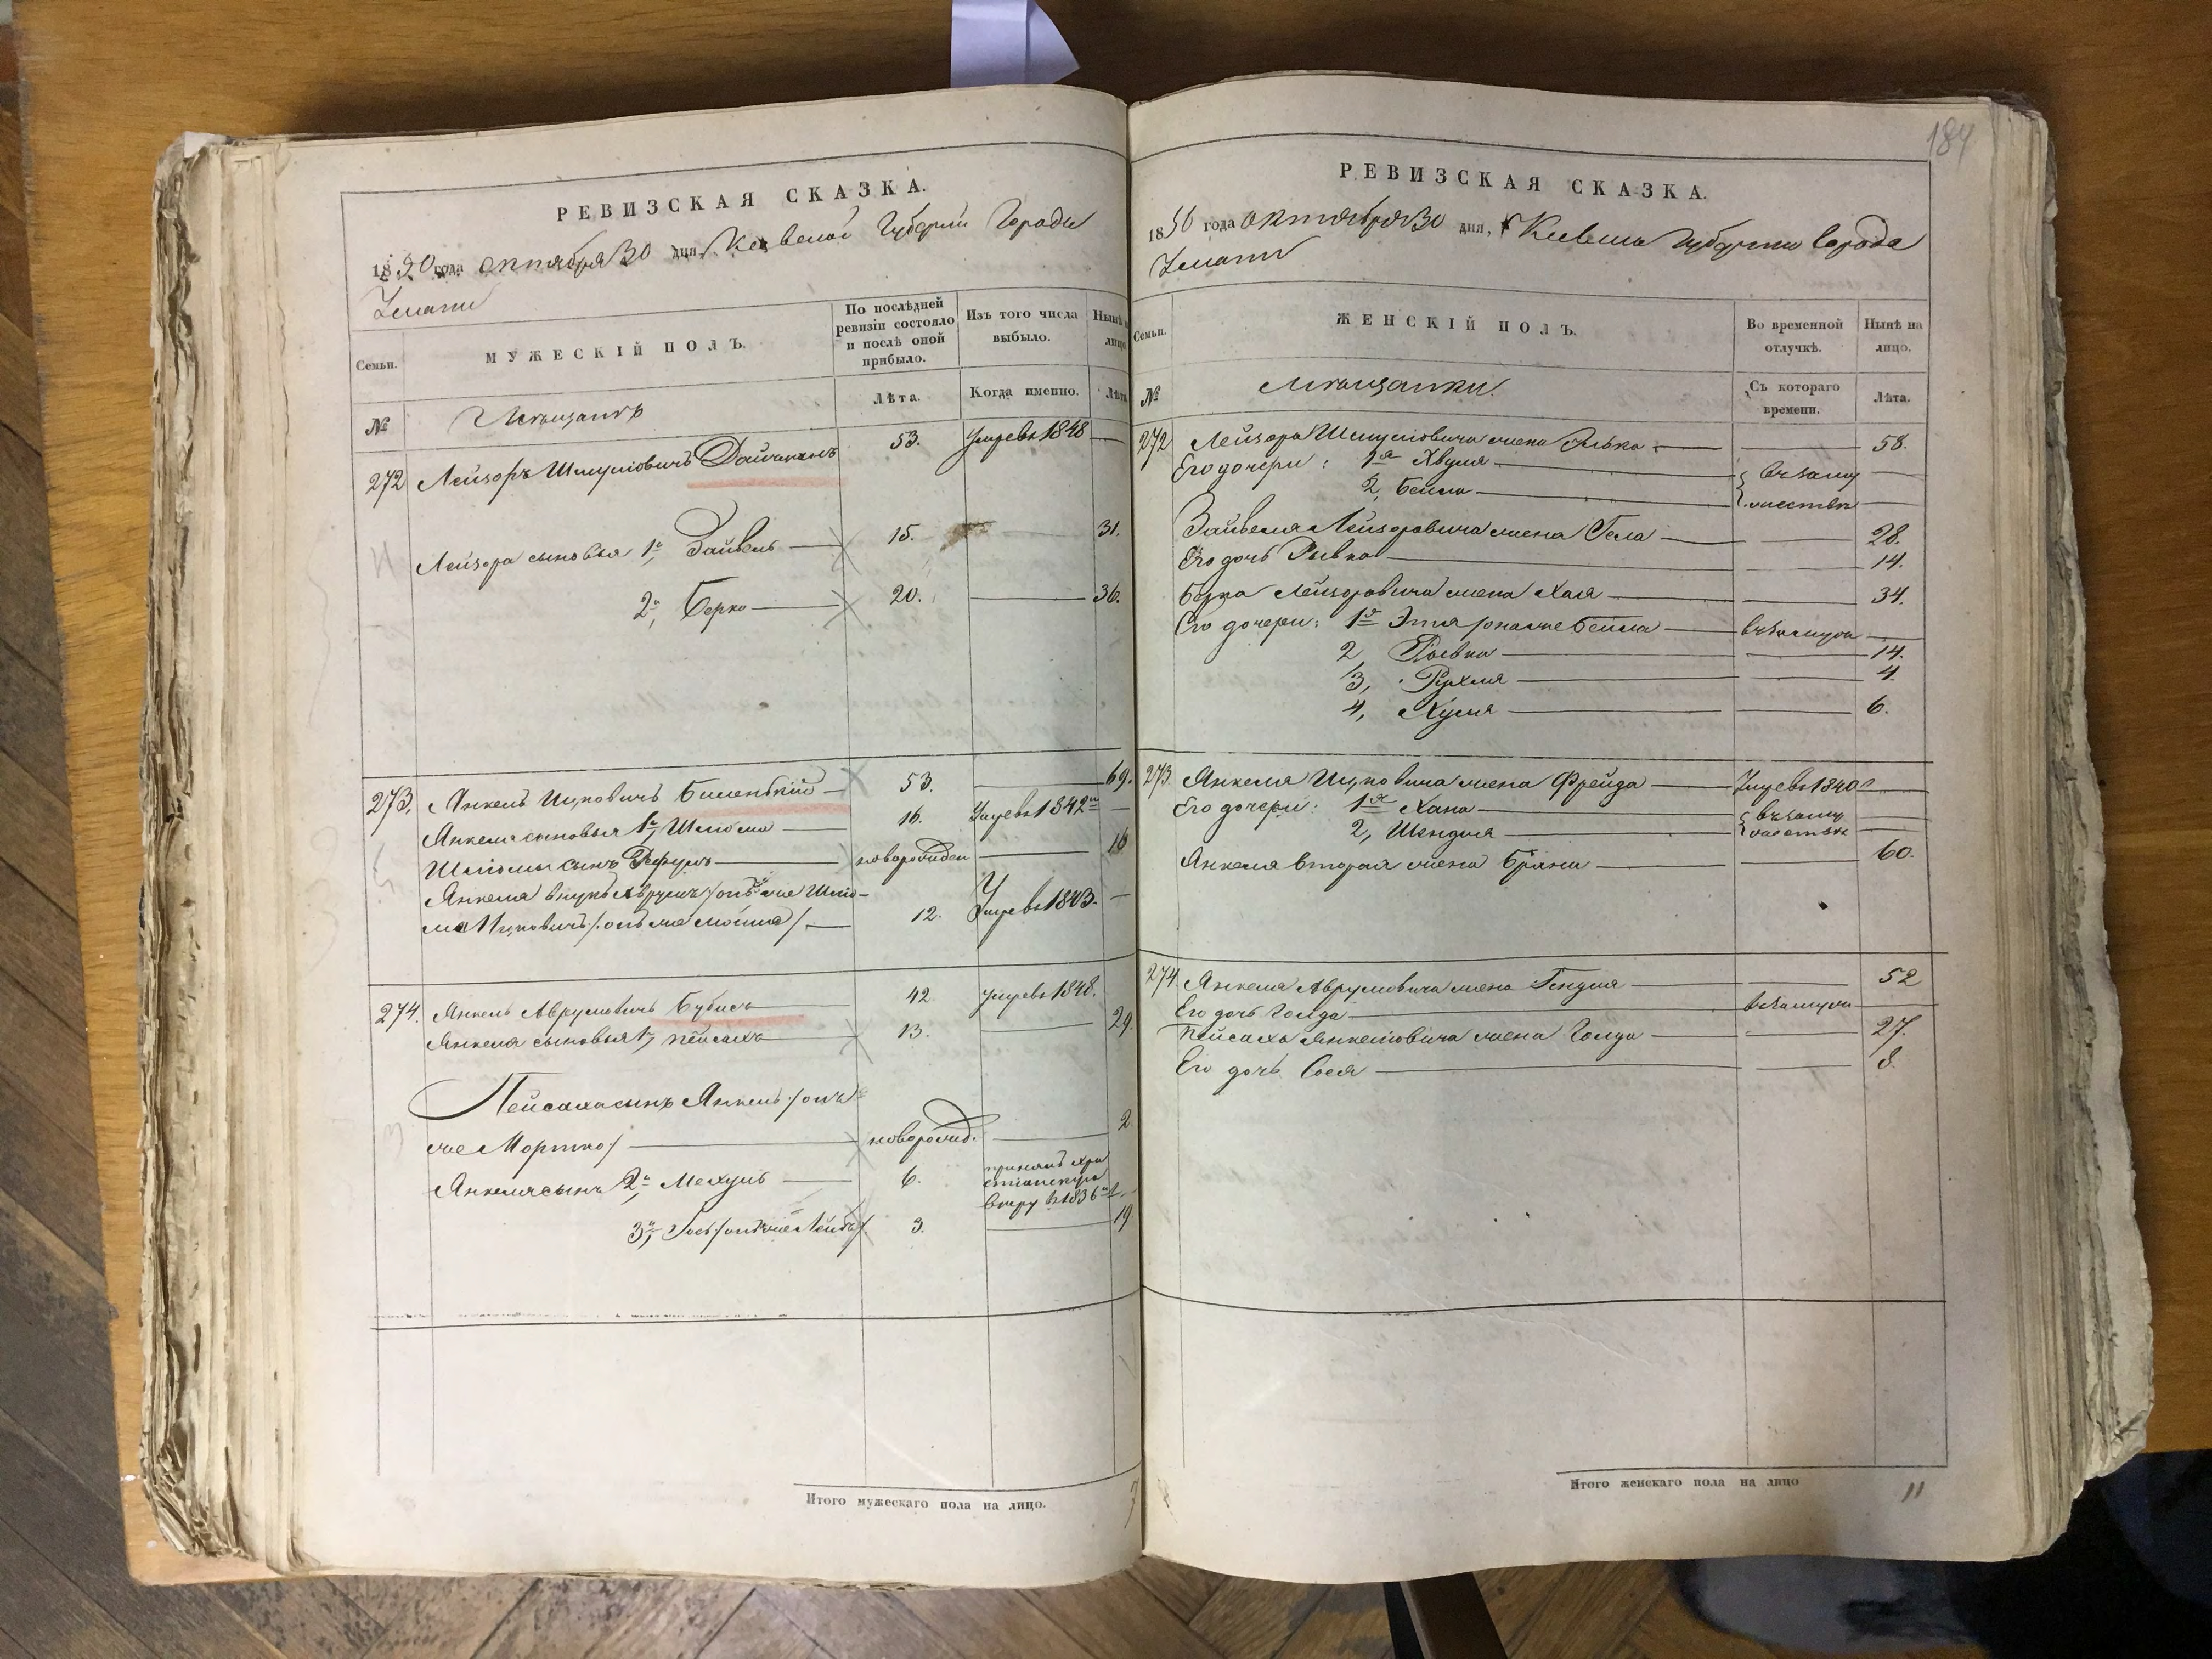 РЕВИЗСКАЯ СКАЗКА.
1850 года октября 30 дня, Киевской Губернии Города
Умани
Семьи.
МУЖЕСКІЙ ПОЛЪ.
По послѣдней ревизіи состояло и послѣ оной прибыло.
Изъ того числа выбыло.
Нынѣ на лицо
№
Мѣщанѣ
Лѣта.
Когда именно.
Лѣта
272 Лейзоръ Шмулiовичъ 53. Умре въ 1848 —
Лейзора сыновья 1й, Зайвель 15. — 31.
2й, Берко 20. — 36.
273. Янкель Ицковичъ Биленькiй 53. — 69.
Янкеля сыновья 1й, Шлiома 16. Умре въ 1842м —
Шлiомы сынъ новорожден — 16
Янкеля внукъ Аврумъ /онъ же Шлiо-
ма Ицковичъ / онъ же Мошко / 12. Умре въ 1843. —
274. Янкель Аврумовичъ Бубисъ 42. Умре въ 1848.
Янкеля сыновья 1й, Пейсахъ 13. — 29.
Пейсаха сынъ Янкель /онъ
же Мортко/ новорожд. — 2
Янкеля сынъ 2й, Мехуль 6. принялъ хри
стiанскую
вѣру въ 1836м
3й, Госъ /онъ же Лейбъ/ 3. — 19
Итого мужескаго пола на лицо. 7
184
РЕВИЗСКАЯ СКАЗКА.
1850 года октября 30 дня, Киевской Губернии Города
Умани
Семьи.
ЖЕНСКІЙ ПОЛЪ.
Во временной отлучкѣ.
Нынѣ на лицо.
№
Мѣщанки.
Съ котораго времени.
Лѣта.
272 Лейзора Шмулiовича жена — 58.
Его дочери: 1я Хвуля въ заму
2, Бейла жествѣ
Зайвеля Лейзоровича жена Гела — 28.
Его дочь Рывка — 14.
Берка Лейзоровича жена Хая — 34.
Его дочери: 1я Этя /она же Бейла въ замужи —
2, Рывка — 14.
3, Рухля — 4.
4, Хуля — 6.
273. Янкеля Ицковича жена Фрейда Умре въ 1840
Его дочери: 1я Хана въ заму
2, Шендля жествѣ
Янкеля вторая жена Брана — 60.
274. Янкеля Аврумовича жена Гендля — 52
Его дочь Голда въ замужи
Пейсаха Янкелiовича жена Голда — 27.
Его дочь Сося — 8.
Итого женскаго пола на лицо 11